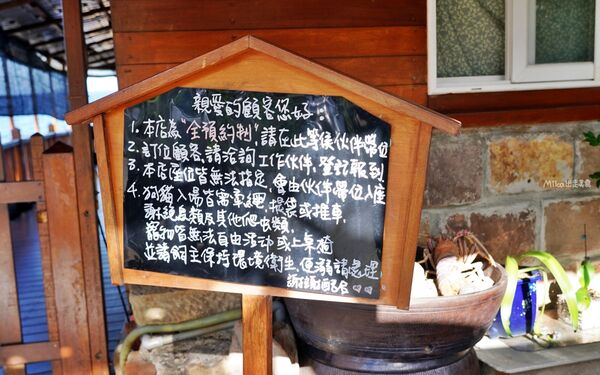 親愛的顧客您好
1. 本店為"全預約制",請在此等侯伙伴帶位
2. 訂位顧客,請洽詢工作伙伴,登記報到
3. 本店座位皆無法指定,會由伙伴帶位入座
4. 狗貓入場皆需牽繩,提袋或推車.
謝絕鳥類及其他爬虫類.
寵物皆無法自由活动或上桌椅
並請飼主保持環境衛生,便溺請處理
謝謝配合♡
MIKa出走美食